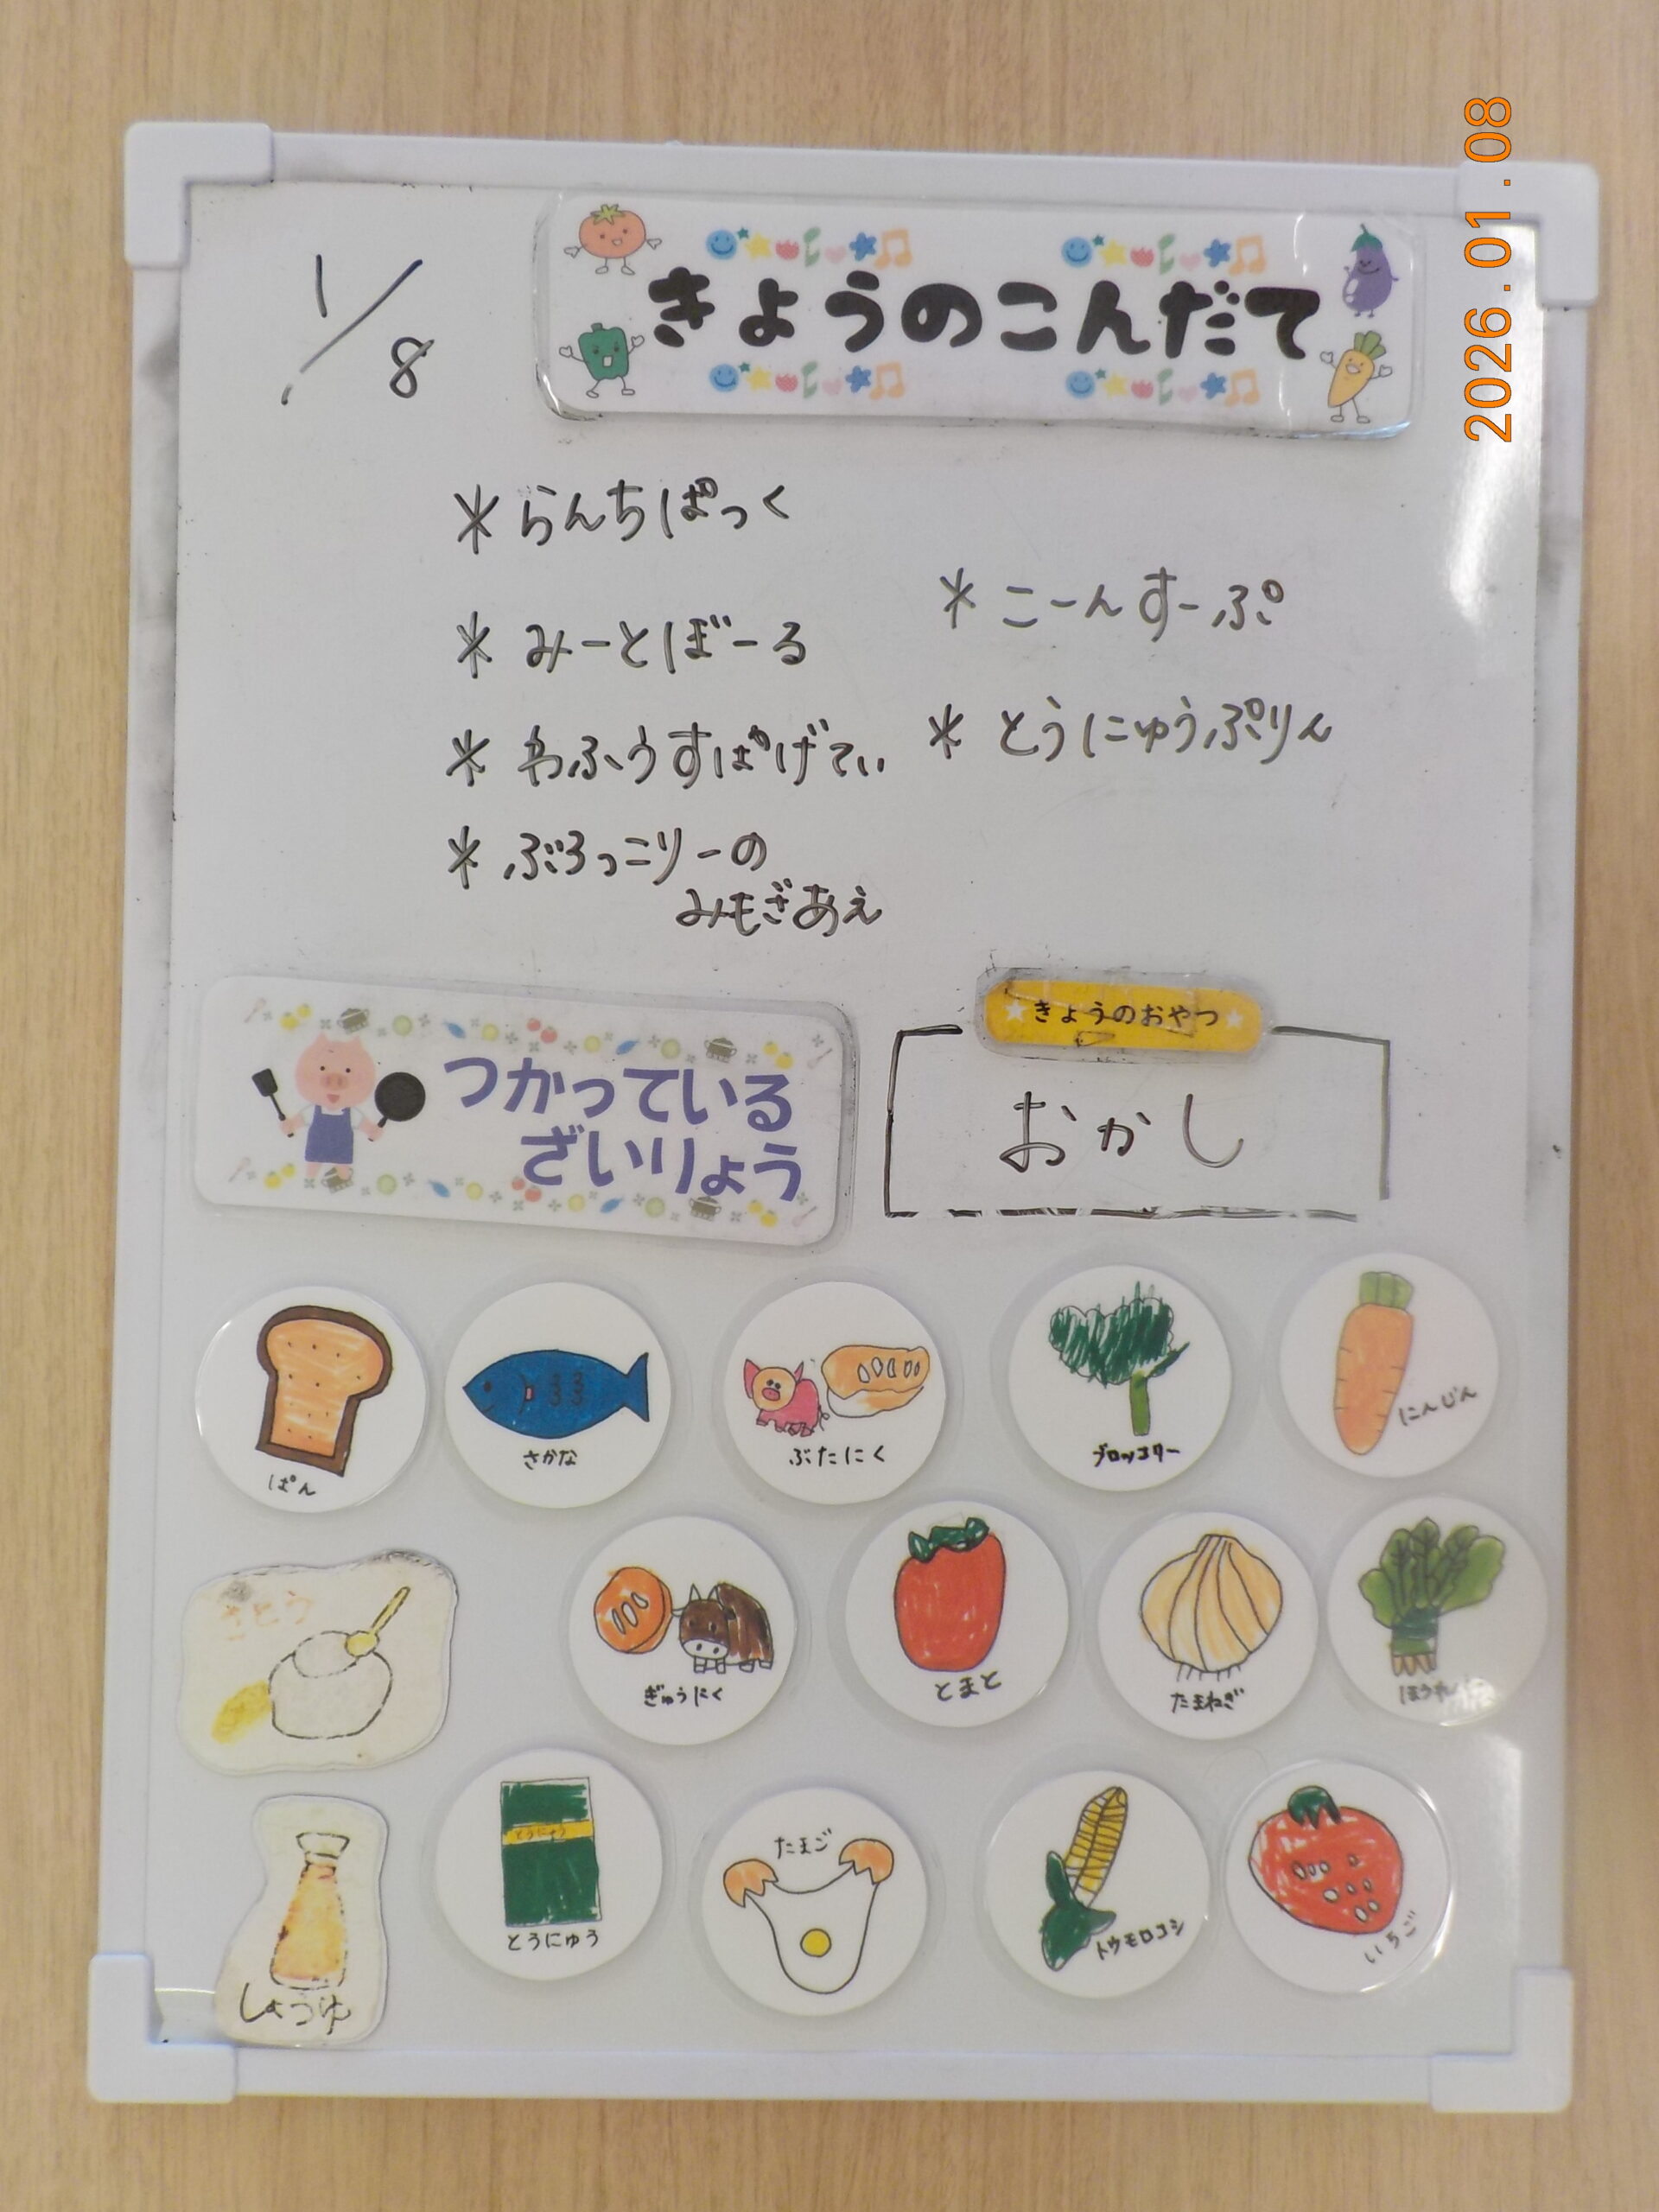 1/8
きょうのこんだて
2026.01.08
* らんちぱっく
* みーとぼーる
* わふうすぱげてぃ
* ぶろっこりーの
みもざあえ
* こーんすーぷ
* とうにゅうぷりん
つかっている
ざいりょう
きょうのおやつ
おかし
ぱん
さかな
ぶたにく
ブロッコリー
にんじん
さとう
ぎゅうにく
とまと
たまねぎ
しょうゆ
とうにゅう
とうにゅう
たまご
トウモロコシ
いちご